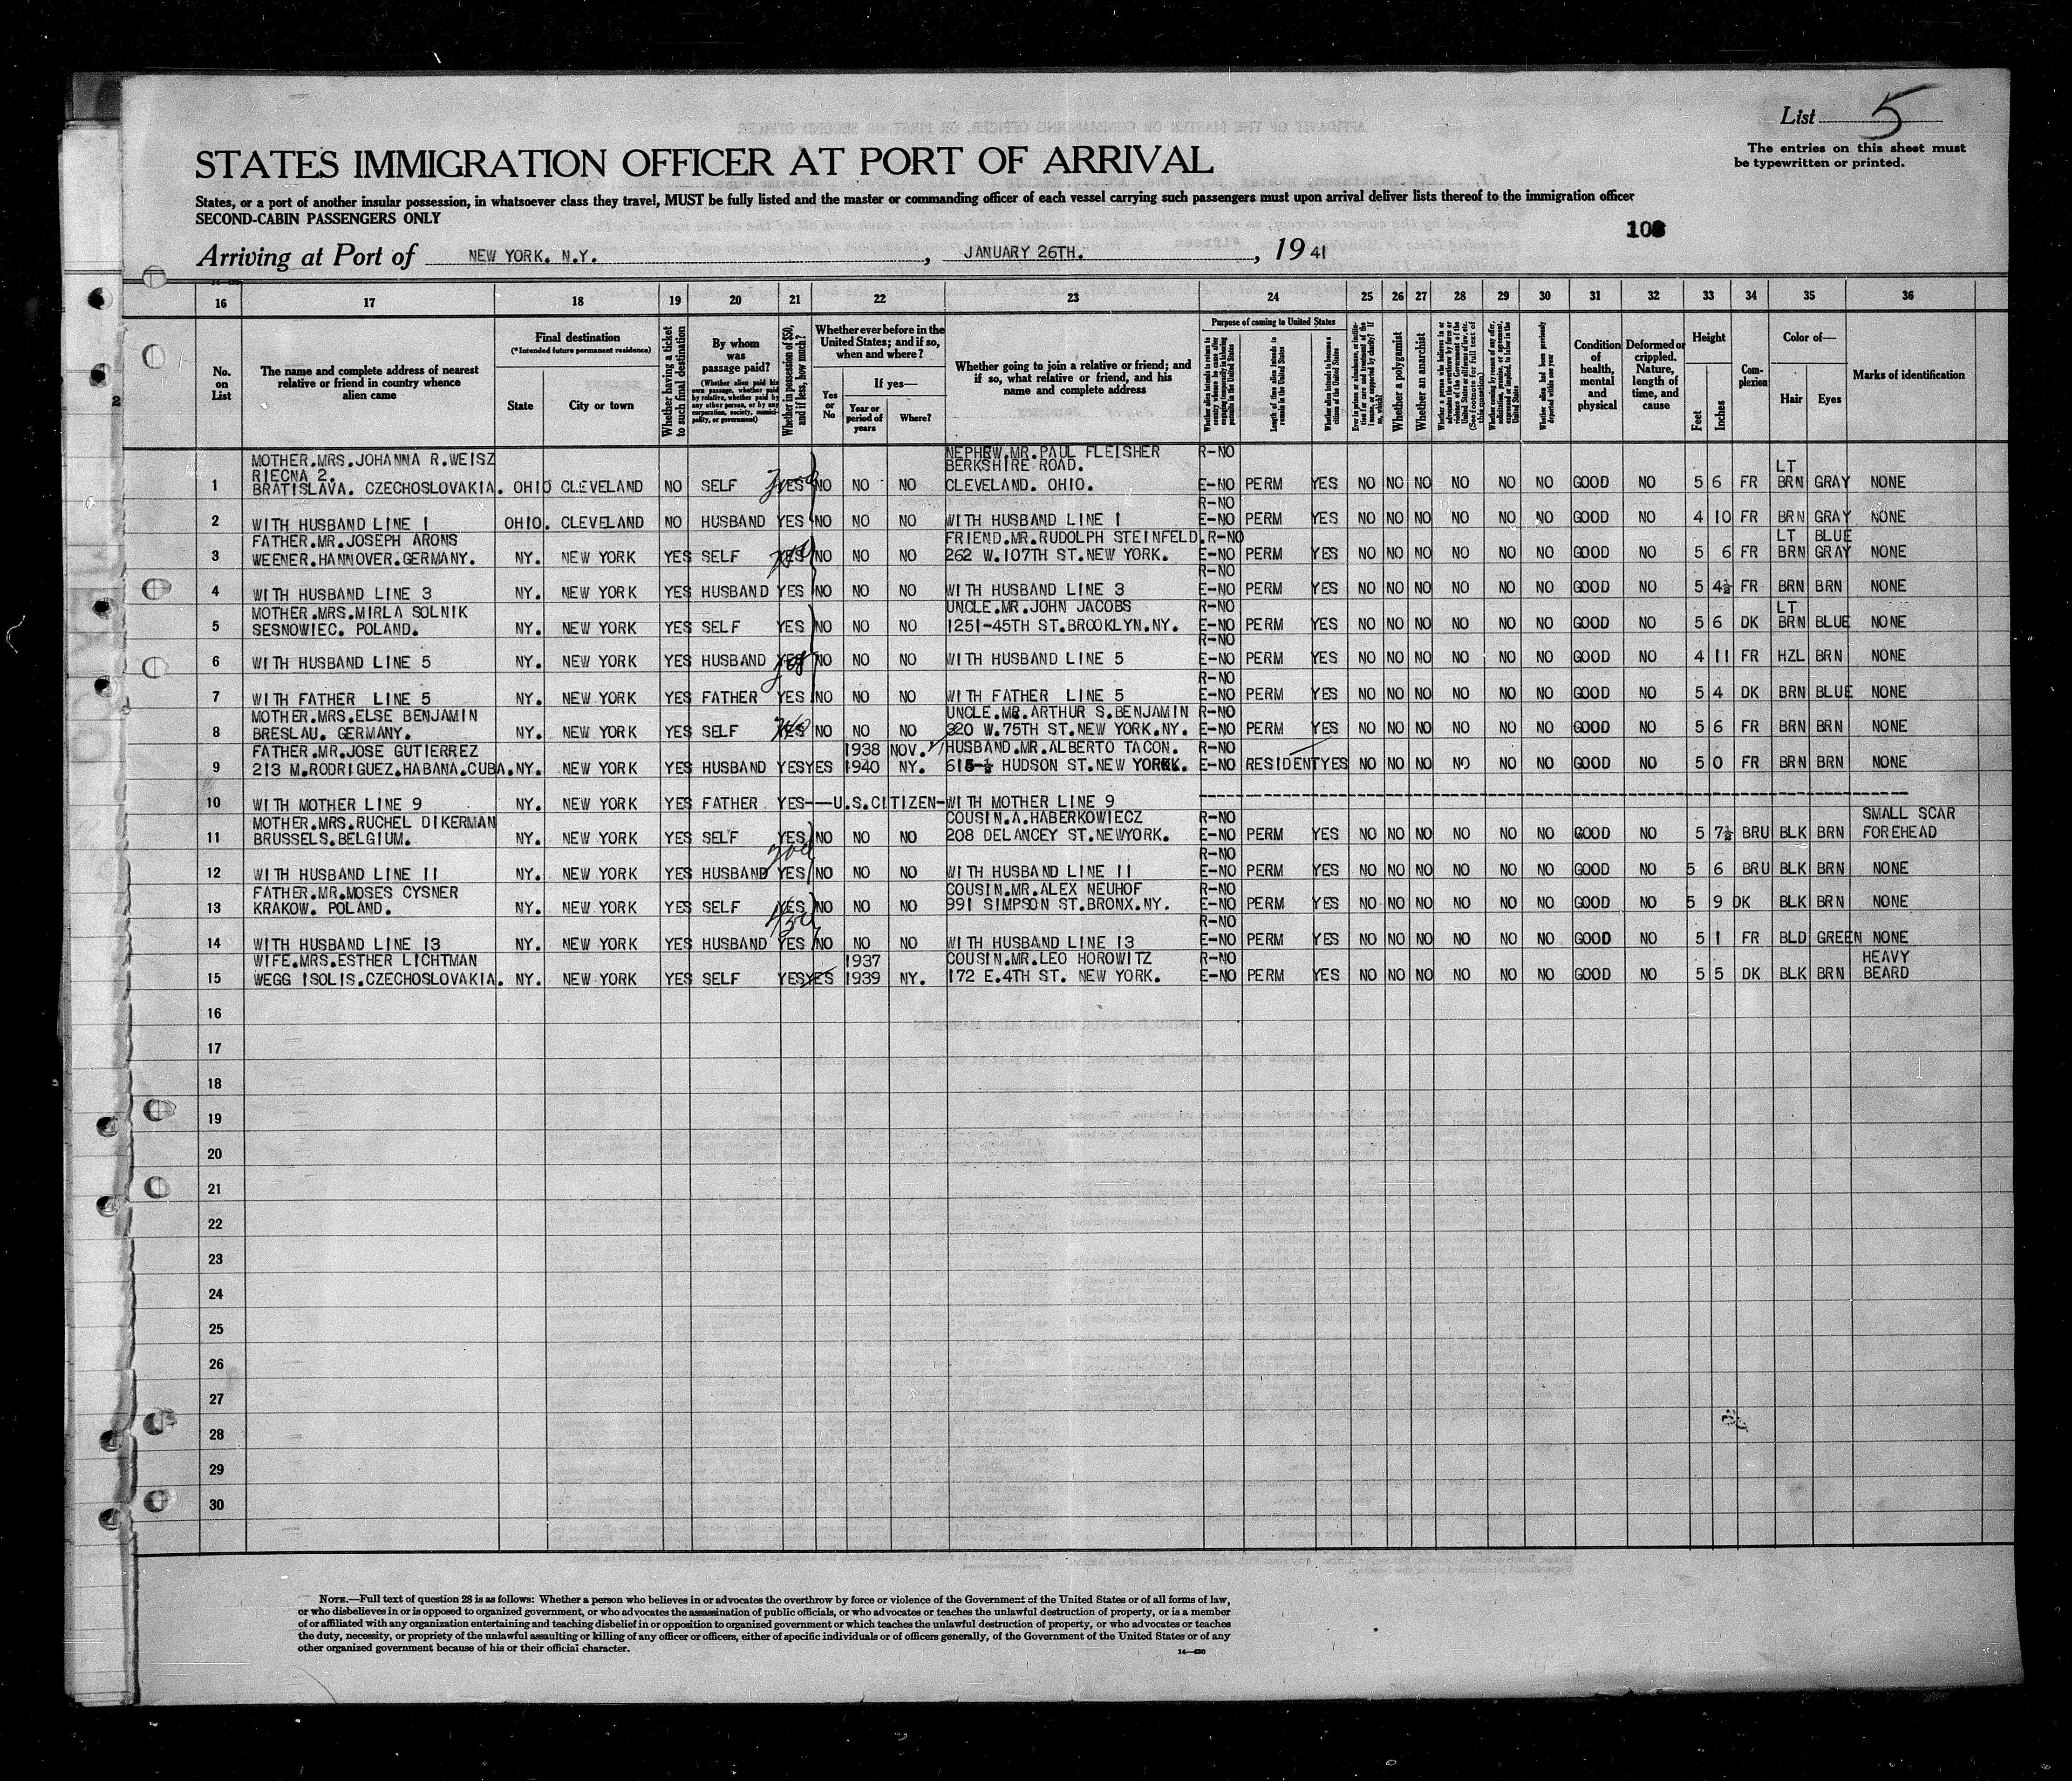 List 5
The entries on this sheet must
be typewritten or printed.
STATES IMMIGRATION OFFICER AT PORT OF ARRIVAL
States, or a port of another insular possession, in whatsoever class they travel, MUST be fully listed and the master or commanding officer of each vessel carrying such passengers must upon arrival deliver lists thereof to the immigration officer
SECOND-CABIN PASSENGERS ONLY
Arriving at Port of NEW YORK. N.Y., JANUARY 26TH., 19 41
16 17 18 19 20 21 22 23 24 25 26 27 28 29 30 31 32 33 34 35 36
No. on List
The name and complete address of nearest relative or friend in country whence alien came
Final destination
(*Intended future permanent residence)
State City or town
Whether having a ticket to such final destination
By whom was passage paid?
(Whether alien paid his own passage, whether paid by relative, whether paid by any other person, or by any corporation, society, municipality, or government)
Whether in possession of $50, and if less, how much?
Whether ever before in the United States; and if so, when and where?
Yes or No
If yes—
Year or period of years Where?
Whether going to join a relative or friend; and if so, what relative or friend, and his name and complete address
Purpose of coming to United States
Length of time alien intends to remain in the United States
Whether alien intends to become a citizen of the United States
Whether a polygamist
Whether an anarchist
Whether alien had been previously deported within one year
Condition of health, mental and physical
Deformed or crippled. Nature, length of time, and cause
Height
Feet Inches
Complexion
Color of—
Hair Eyes
Marks of identification
MOTHER.MRS.JOHANNA R.WEISZ NEPHEW.MR.PAUL FLEISHER R-NO
RIECNA 2. BERKSHIRE ROAD. LT
1 BRATISLAVA. CZECHOSLOVAKIA. OHIO CLEVELAND NO SELF YES NO NO NO CLEVELAND. OHIO. E-NO PERM YES NO NO NO NO NO NO GOOD NO 5 6 FR BRN GRAY NONE
R-NO
2 WITH HUSBAND LINE 1 OHIO. CLEVELAND NO HUSBAND YES NO NO NO WITH HUSBAND LINE 1 E-NO PERM YES NO NO NO NO NO NO GOOD NO 4 10 FR BRN GRAY NONE
FATHER.MR.JOSEPH ARONS FRIEND.MR.RUDOLPH STEINFELD.R-NO LT BLUE
3 WEENER.HANNOVER.GERMANY. NY. NEW YORK YES SELF YES NO NO NO 262 W.107TH ST.NEW YORK. E-NO PERM YES NO NO NO NO NO NO GOOD NO 5 6 FR BRN GRAY NONE
R-NO
4 WITH HUSBAND LINE 3 NY. NEW YORK YES HUSBAND YES NO NO NO WITH HUSBAND LINE 3 E-NO PERM YES NO NO NO NO NO NO GOOD NO 5 4½ FR BRN BRN NONE
MOTHER.MRS.MIRLA SOLNIK UNCLE.MR.JOHN JACOBS R-NO LT
5 SESNOWIEC. POLAND. NY. NEW YORK YES SELF YES NO NO NO 1251-45TH ST.BROOKLYN.NY. E-NO PERM YES NO NO NO NO NO NO GOOD NO 5 6 DK BRN BLUE NONE
R-NO
6 WITH HUSBAND LINE 5 NY. NEW YORK YES HUSBAND YES NO NO NO WITH HUSBAND LINE 5 E-NO PERM YES NO NO NO NO NO NO GOOD NO 4 11 FR HZL BRN NONE
R-NO
7 WITH FATHER LINE 5 NY. NEW YORK YES FATHER YES NO NO NO WITH FATHER LINE 5 E-NO PERM YES NO NO NO NO NO NO GOOD NO 5 4 DK BRN BLUE NONE
MOTHER.MRS.ELSE BENJAMIN UNCLE.MR.ARTHUR S.BENJAMIN R-NO
8 BRESLAU. GERMANY. NY. NEW YORK YES SELF YES NO NO NO 320 W.75TH ST.NEW YORK.NY. E-NO PERM YES NO NO NO NO NO NO GOOD NO 5 6 FR BRN BRN NONE
FATHER.MR.JOSE GUTIERREZ 1938 NOV. HUSBAND.MR.ALBERTO TACON. R-NO
9 213 M.RODRIGUEZ.HABANA.CUBA. NY. NEW YORK YES HUSBAND YES YES 1940 NY. 615-½ HUDSON ST.NEW YORK. E-NO RESIDENT YES NO NO NO NO NO NO GOOD NO 5 0 FR BRN BRN NONE
10 WITH MOTHER LINE 9 NY. NEW YORK YES FATHER YES--U.S.CITIZEN-WITH MOTHER LINE 9
MOTHER.MRS.RUCHEL DIKERMAN COUSIN.A.HABERKOWIECZ R-NO SMALL SCAR
11 BRUSSELS.BELGIUM. NY. NEW YORK YES SELF YES NO NO NO 208 DELANCEY ST.NEWYORK. E-NO PERM YES NO NO NO NO NO NO GOOD NO 5 7½ BRU BLK BRN FOREHEAD
R-NO
12 WITH HUSBAND LINE 11 NY. NEW YORK YES HUSBAND YES NO NO NO WITH HUSBAND LINE 11 E-NO PERM YES NO NO NO NO NO NO GOOD NO 5 6 BRU BLK BRN NONE
FATHER.MR.MOSES CYSNER COUSIN.MR.ALEX NEUHOF R-NO
13 KRAKOW. POLAND. NY. NEW YORK YES SELF YES NO NO NO 991 SIMPSON ST.BRONX.NY. E-NO PERM YES NO NO NO NO NO NO GOOD NO 5 9 DK BLK BRN NONE
R-NO
14 WITH HUSBAND LINE 13 NY. NEW YORK YES HUSBAND YES NO NO NO WITH HUSBAND LINE 13 E-NO PERM YES NO NO NO NO NO NO GOOD NO 5 1 FR BLD GREEN NONE
WIFE.MRS.ESTHER LICHTMAN 1937 COUSIN.MR.LEO HOROWITZ R-NO HEAVY
15 WEGG ISOLIS.CZECHOSLOVAKIA. NY. NEW YORK YES SELF YES YES 1939 NY. 172 E.4TH ST. NEW YORK. E-NO PERM YES NO NO NO NO NO NO GOOD NO 5 5 DK BLK BRN BEARD
16
17
18
19
20
21
22
23
24
25
26
27
28
29
30
NOTE.—Full text of question 28 is as follows: Whether a person who believes in or advocates the overthrow by force or violence of the Government of the United States or of all forms of law,
or who disbelieves in or is opposed to organized government, or who advocates the assassination of public officials, or who advocates or teaches the unlawful destruction of property, or is a member
of or affiliated with any organization entertaining and teaching disbelief in or opposition to organized government or which teaches the unlawful destruction of property, or who advocates or teaches
the duty, necessity, or propriety of the unlawful assaulting or killing of any officer or officers, either of specific individuals or of officers generally, of the Government of the United States or of any
other organized government because of his or their official character.
14—430